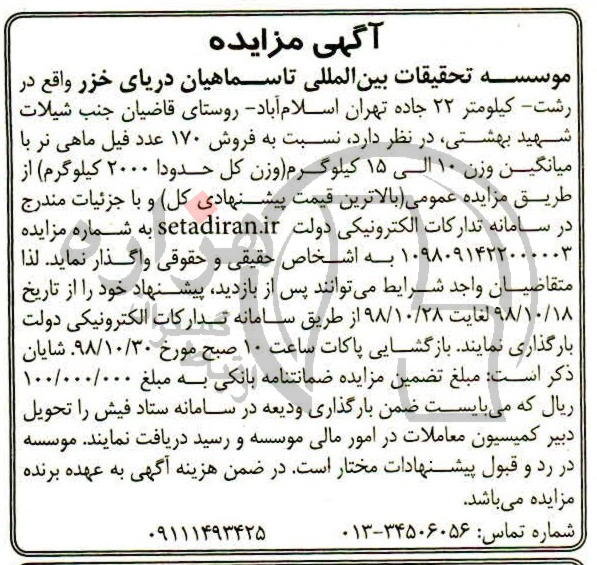 آگهی مزایده
موسسه تحقیقات بین‌المللی تاسماهیان دریای خزر واقع در
رشت- کیلومتر ۲۲ جاده تهران اسلام‌آباد- روستای قاضیان جنب شیلات
شهید بهشتی، در نظر دارد، نسبت به فروش ۱۷۰ عدد فیل ماهی نر با
میانگین وزن ۱۰ الی ۱۵ کیلوگرم(وزن کل حدودا ۲۰۰۰ کیلوگرم) از
طریق مزایده عمومی(بالاترین قیمت پیشنهادی کل) و با جزئیات مندرج
در سامانه تدارکات الکترونیکی دولت setadiran.ir به شماره مزایده
۱۰۹۸۰۹۱۴۲۲۰۰۰۰۰۳ به اشخاص حقیقی و حقوقی واگذار نماید. لذا
متقاضیان واجد شرایط می‌توانند پس از بازدید، پیشنهاد خود را از تاریخ
۹۸/۱۰/۱۸ لغایت ۹۸/۱۰/۲۸ از طریق سامانه تدارکات الکترونیکی دولت
بارگذاری نمایند. بازگشایی پاکات ساعت ۱۰ صبح مورخ ۹۸/۱۰/۳۰. شایان
ذکر است: مبلغ تضمین مزایده ضمانتنامه بانکی به مبلغ ۱۰۰/۰۰۰/۰۰۰
ریال که می‌بایست ضمن بارگذاری ودیعه در سامانه ستاد فیش را تحویل
دبیر کمیسیون معاملات در امور مالی موسسه و رسید دریافت نمایند. موسسه
در رد و قبول پیشنهادات مختار است. در ضمن هزینه آگهی به عهده برنده
مزایده می‌باشد.
شماره تماس: ۳۴۵۰۶۰۵۶-۰۱۳ ۰۹۱۱۱۴۹۳۴۲۵
هزاره